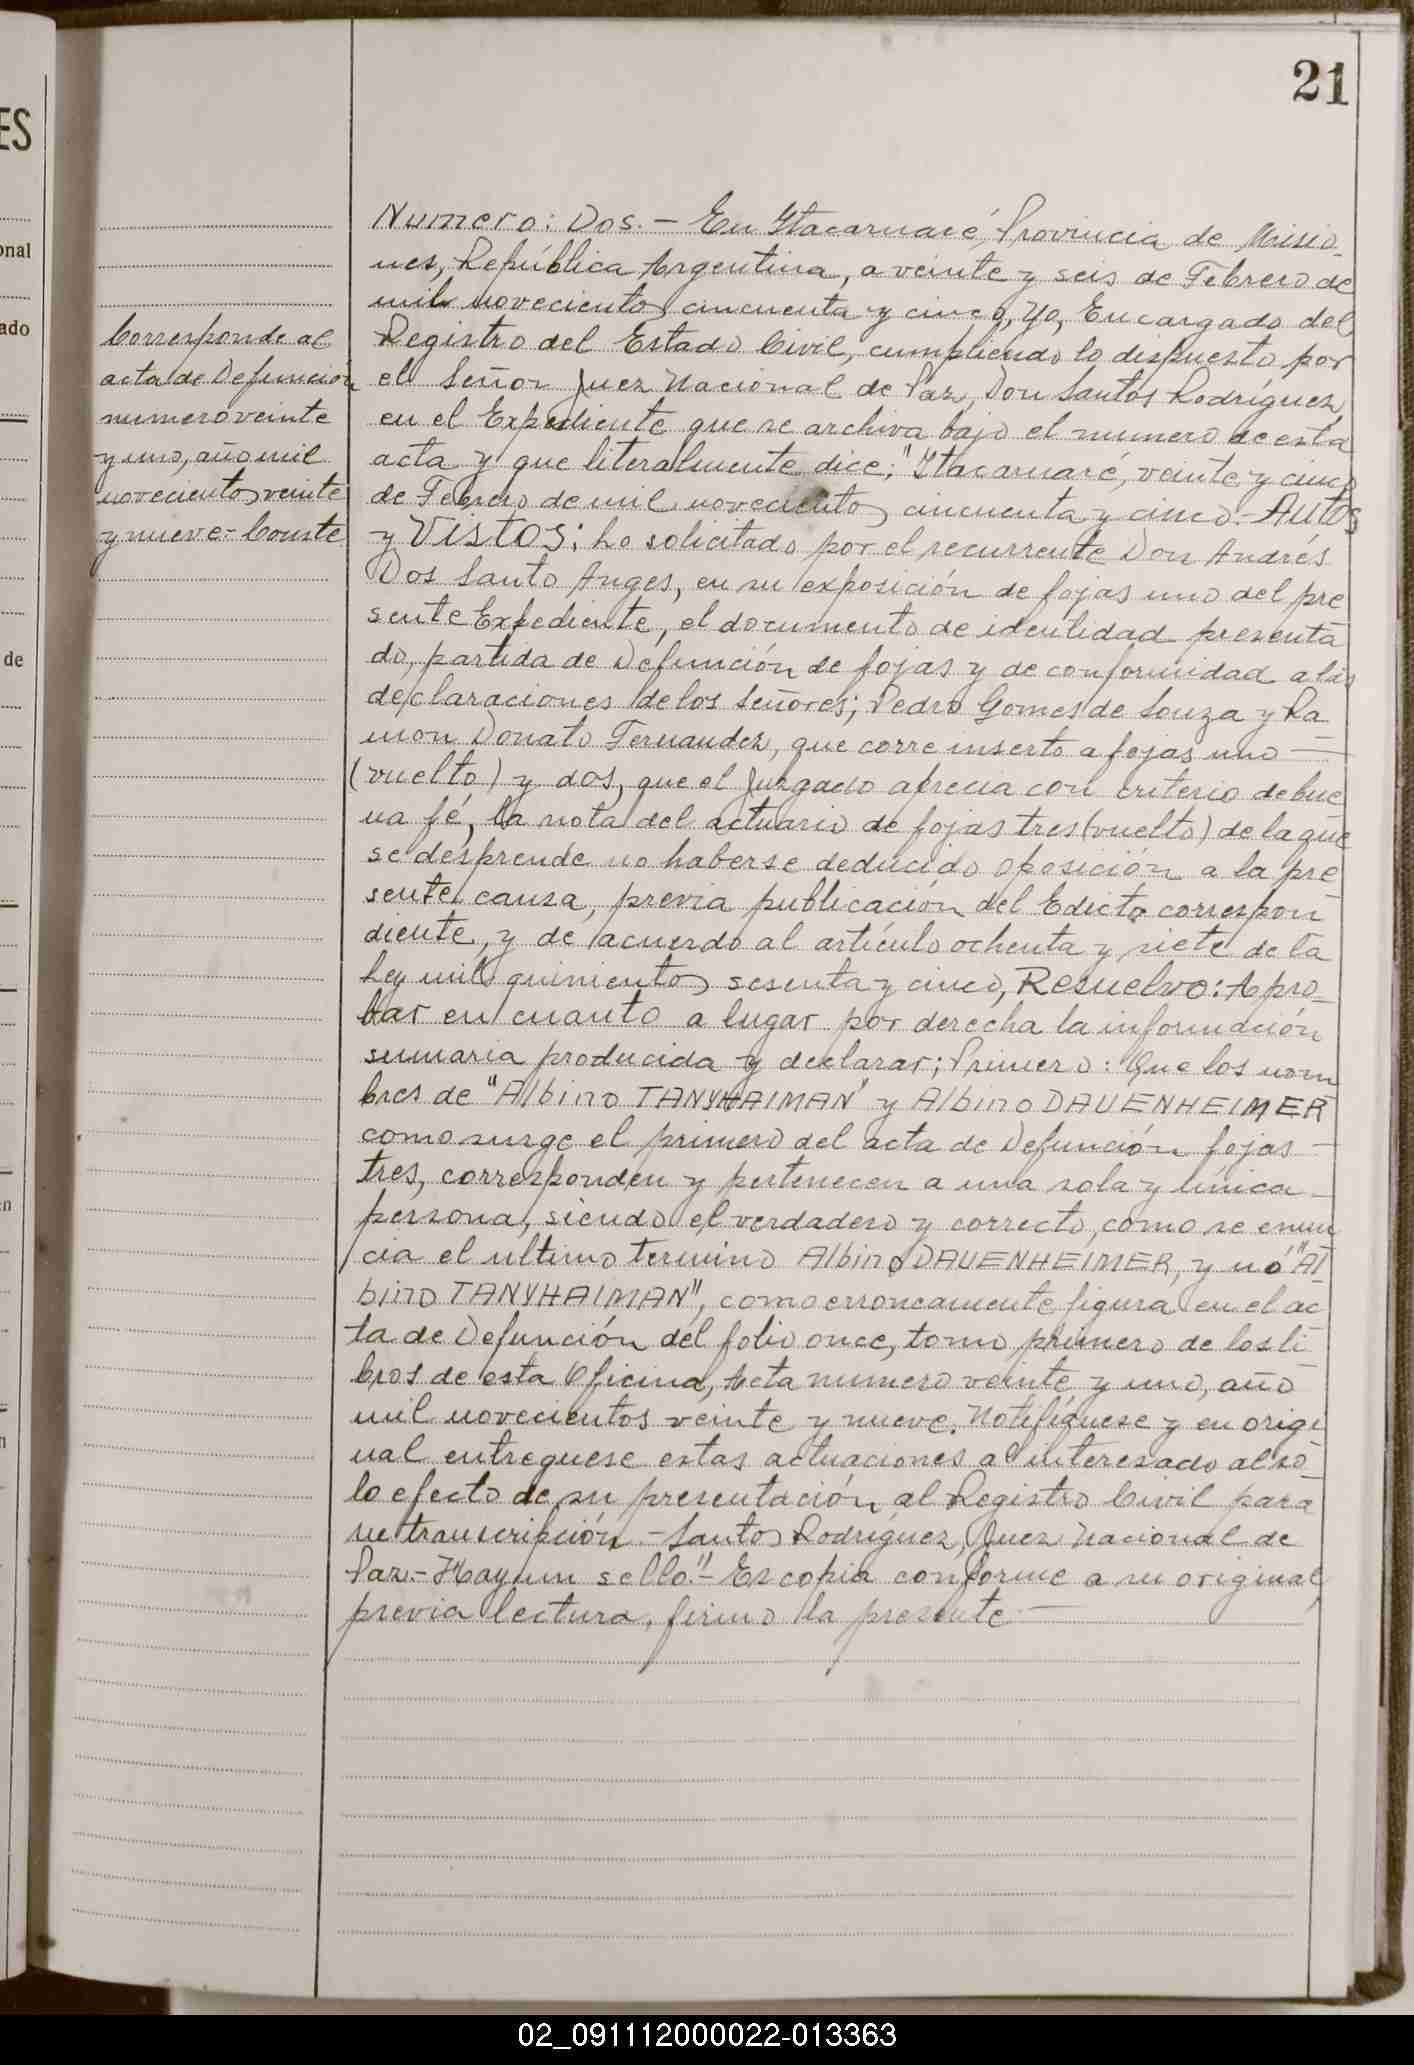 ES
onal
ado
de
en
n
21
Corresponde al
acta de Defuncion
numero veinte
y uno, año mil
novecientos veinte
y nueve.- Conste
Numero: Dos.- En Itacaruaré, Provincia de Misio
nes, República Argentina, a veinte y seis de Febrero de
mil novecientos cincuenta y cinco, Yo, Encargado del
Registro del Estado Civil, cumpliendo lo dispuesto por
el Señor Juez Nacional de Paz, Don Santos Rodríguez,
en el Expediente que se archiva bajo el numero de esta
acta y que literalmente dice: "Itacaruaré, veinte y cinco
de Febrero de mil novecientos cincuenta y cinco.- Autos
y Vistos: Lo solicitado por el recurrente Don Andrés
Dos Santo Anges, en su exposición de fojas uno del pre
sente Expediente, el documento de identidad presenta
do, partida de Defunción de fojas y de conformidad a las
declaraciones de los Señores; Pedro Gomes de Souza y Ra
mon Donato Fernandez, que corre inserto a fojas uno
(vuelto) y dos, que el Juzgado aprecia con criterio de bue
na fé, la nota del actuario de fojas tres (vuelto) de la que
se desprende no haberse deducido oposición a la pre
sente causa, previa publicación del Edicto correspon
diente, y de acuerdo al artículo ochenta y siete de la
Ley mil quinientos sesenta y cinco, Resuelvo: Apro_
bar en cuanto a lugar por derecha la información
sumaria producida y declarar; Primero: Que los nom
bres de "Albino TANYHAIMAN" y Albino DAUENHEIMER
como surge el primero del acta de Defunción fojas
tres, corresponden y pertenecen a una sola y única
persona, siendo el verdadero y correcto, como se enun
cia el ultimo termino Albino DAUENHEIMER, y nó "Al
bino TANYHAIMAN", como erroneamente figura en el ac
ta de Defunción del folio once, tomo primero de los li
bros de esta Oficina, Acta numero veinte y uno, año
mil novecientos veinte y nueve. Notifíquese y en origi
nal entreguese estas actuaciones al interesado al so_
lo efecto de su presentación al Registro Civil para
su transcripción.- Santos Rodríguez, Juez Nacional de
Paz.- Hay un sello."- Es copia conforme a su original,
previa lectura, firmo la presente.-
02_091112000022-013363